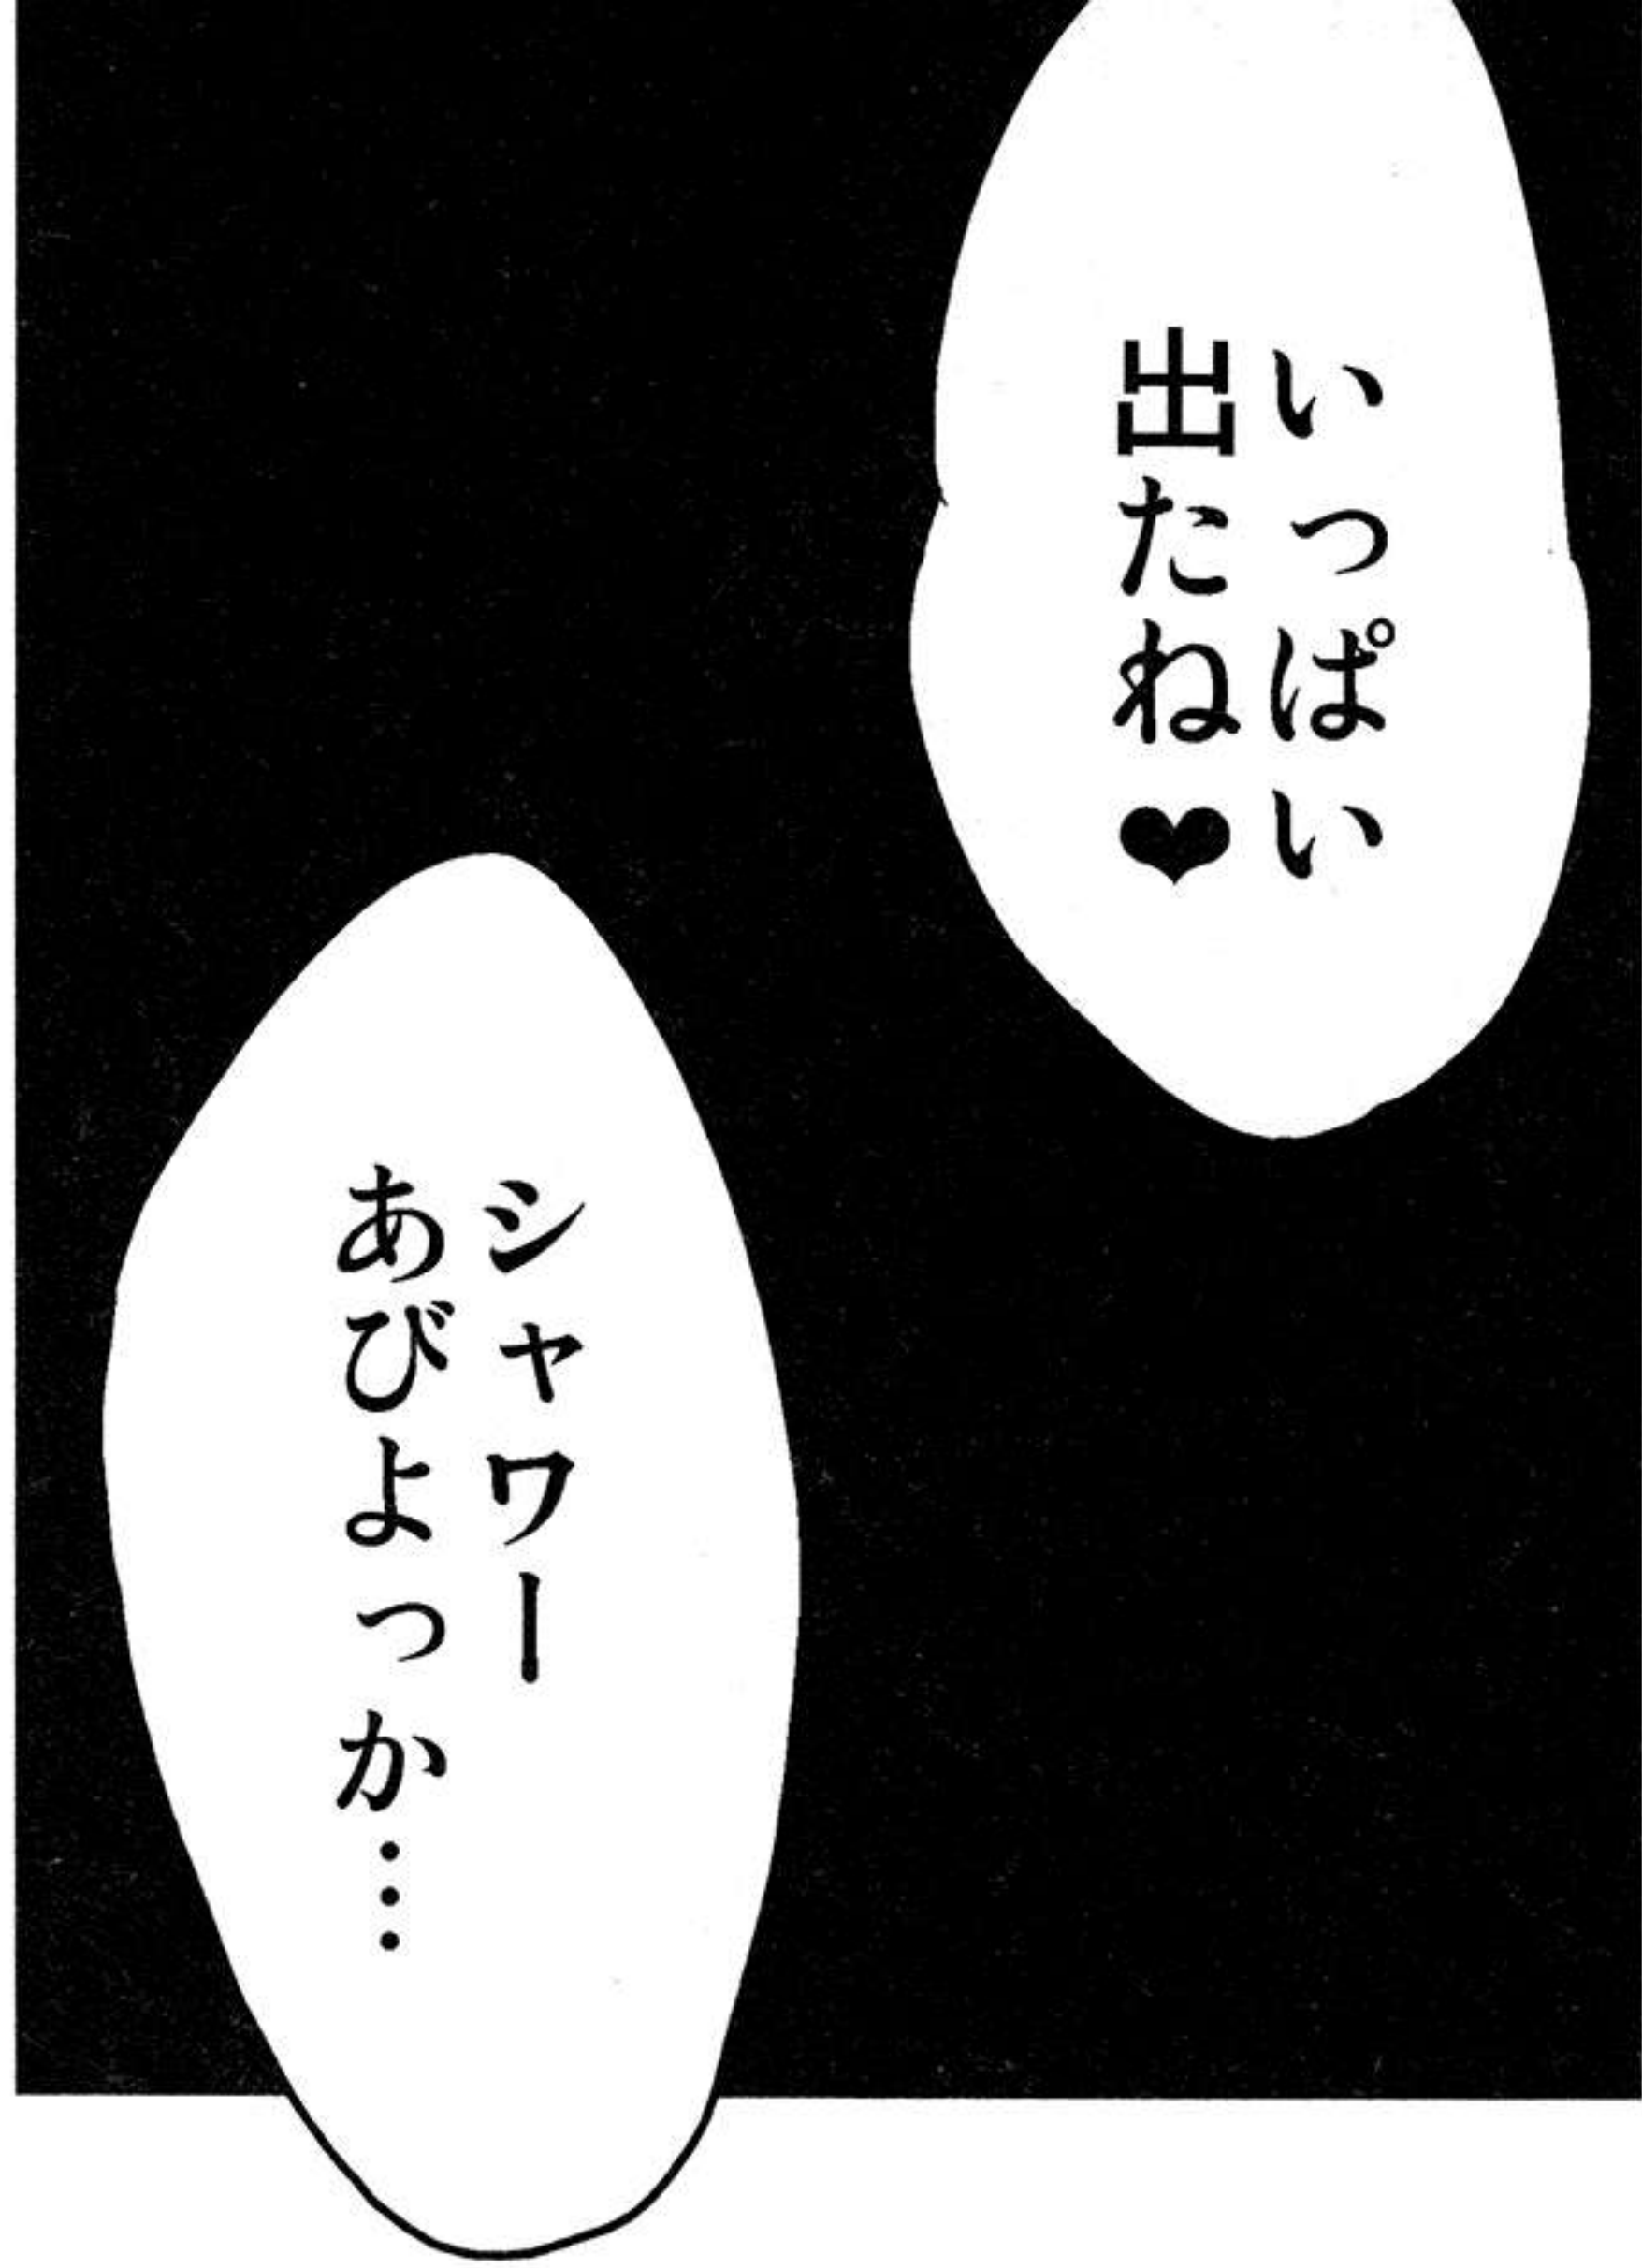 いっぱい
出たね❤
シャワー
あびよっか…